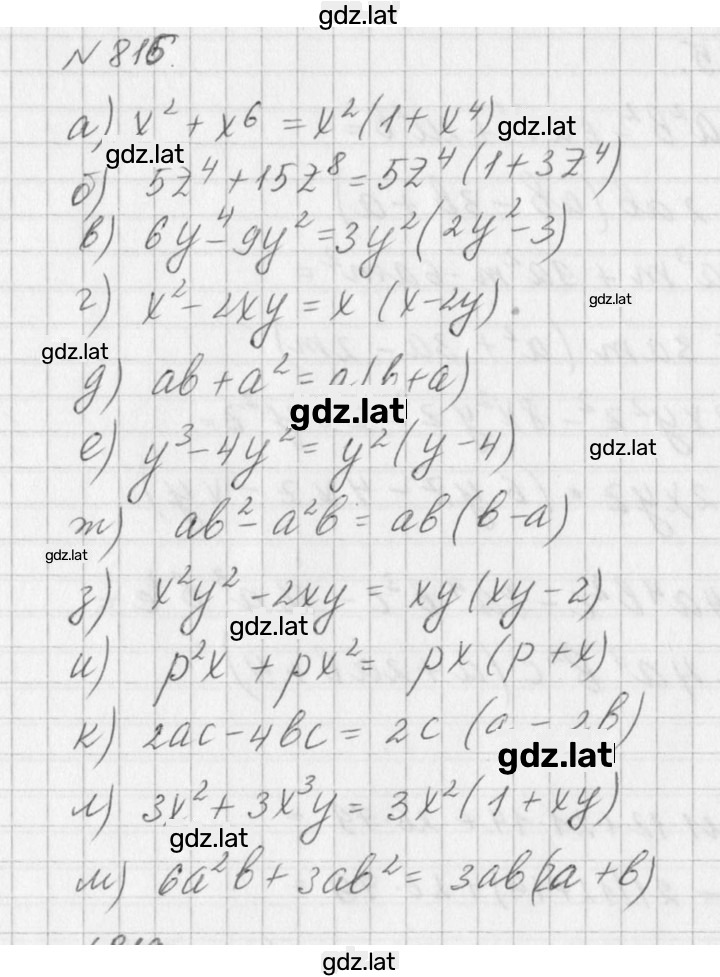 gdz.lat
N 815.
а) x² + x⁶ = x²(1 + x⁴)
gdz.lat
gdz.lat
б) 5z⁴ + 15z⁸ = 5z⁴(1 + 3z⁴)
в) 6y⁴ - 9y² = 3y²(2y² - 3)
г) x² - 2xy = x (x - 2y).
gdz.lat
gdz.lat
д) ab + a² = a(b + a)
gdz.lat
е) y³ - 4y² = y²(y - 4)
gdz.lat
ж) ab² - a²b = ab(b - a)
gdz.lat
з) x²y² - 2xy = xy(xy - 2)
gdz.lat
и) p²x + px² = px(p + x)
к) 2ac - 4bc = 2c (a - 2b)
gdz.lat
л) 3x² + 3x³y = 3x²(1 + xy)
gdz.lat
м) 6a²b + 3ab² = 3ab(2a + b)
gdz.lat